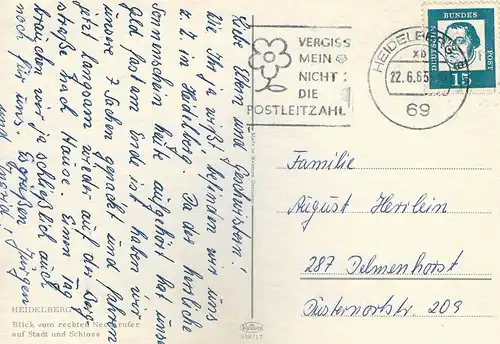 Liebe Eltern und Geschwister!
Wie Ihr ja wißt, befinden wir uns
z. Z. in Heidelberg. Da der herrliche
Sonnenschein heute aufgehört hat und unser
Geld fast am Ende ist haben wir
unsere 7 Sachen gepackt und fahren
jetzt langsam wieder auf der Berg
straße nach Hause. Einen Tag
brauchen wir ja schließlich auch
noch für uns. Es grüßen
und Jürgen
HEIDELBERG
Blick vom rechten Neckarufer
auf Stadt und Schloss
VERGISS
MEIN
NICHT
DIE
POSTLEITZAHL
HEIDELBERG
22.6.65
69
DEUTSCHE
BUNDES
POST
15
Familie
August Herrlein
287 Delmenhorst
Düsternortstr. 209